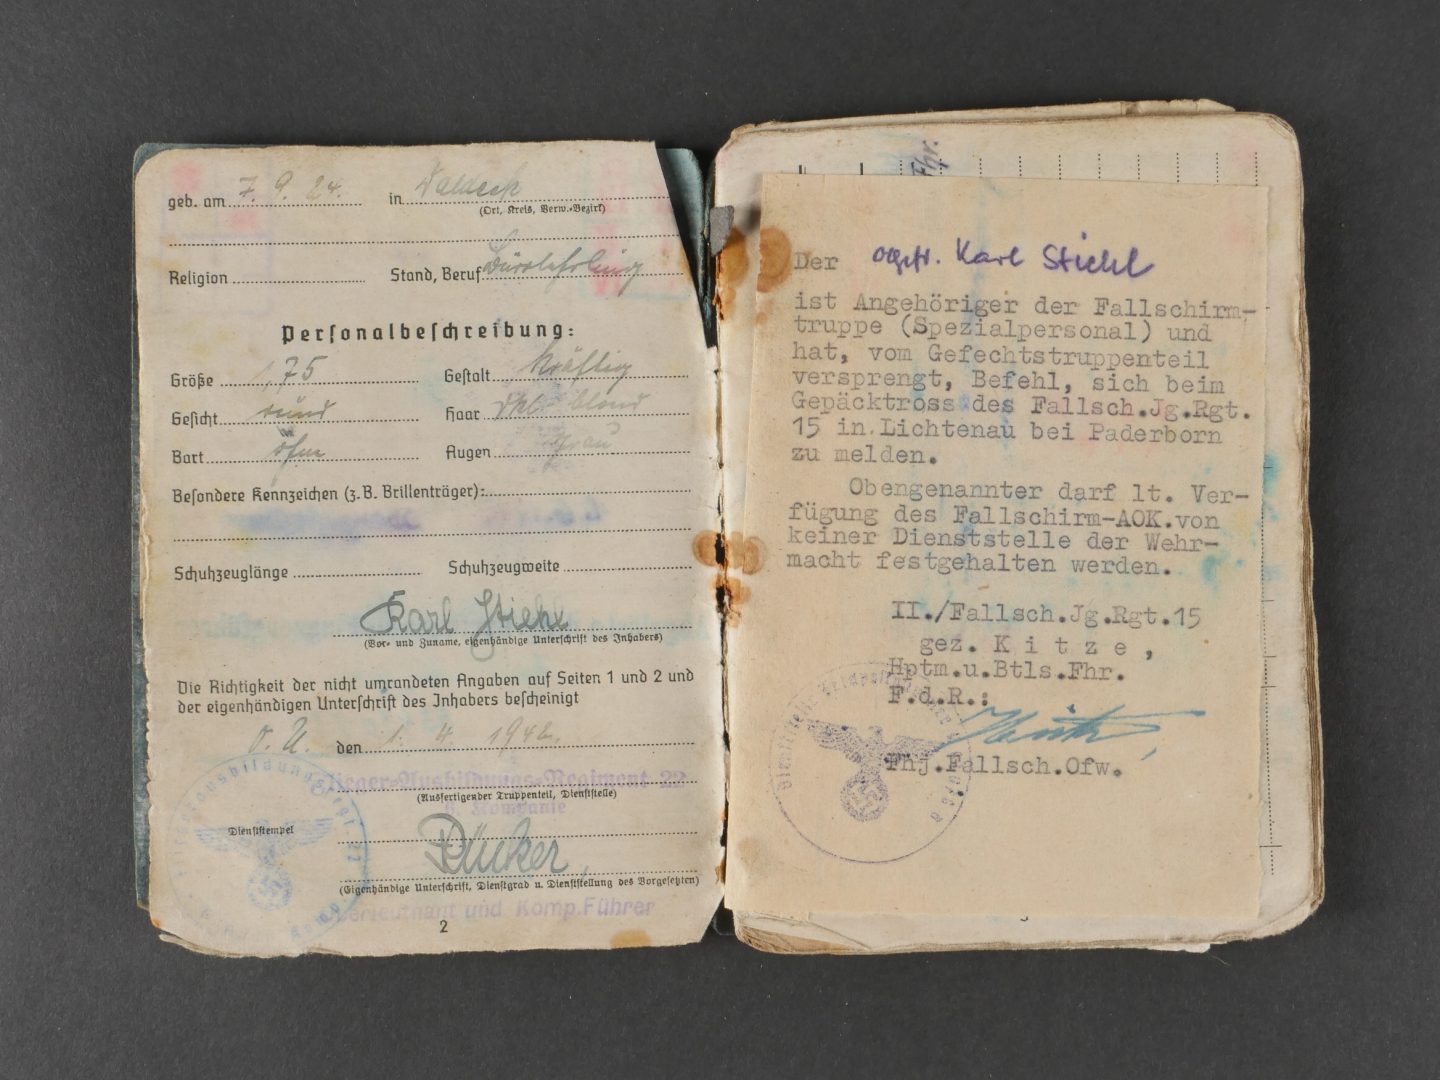 geb. am 7. 9. 24. in Waldeck
(Ort, Kreis, Verw.-Bezirk)
Religion Stand, Beruf Bürolehrling
Personalbeschreibung:
Größe 1,75 Gestalt kräftig
Gesicht rund Haar dkl. blond
Bart ohne Augen grau
Besondere Kennzeichen (z.B. Brillenträger):
Schuhzeuglänge Schuhzeugweite
Karl Stiehl
(Vor- und Zuname, eigenhändige Unterschrift des Inhabers)
Die Richtigkeit der nicht umrandeten Angaben auf Seiten 1 und 2 und
der eigenhändigen Unterschrift des Inhabers bescheinigt
O. U. den 1. 4. 1942.
Flieger-Ausbildungs-Regiment 22
(Ausfertigender Truppenteil, Dienststelle)
Kompanie
Dienststempel
Dücker,
(Eigenhändige Unterschrift, Dienstgrad u. Dienststellung des Vorgesetzten)
Oberleutnant und Komp.Führer
2
Fhr.
Der Ogefr. Karl Stiehl
ist Angehöriger der Fallschirm-
truppe (Spezialpersonal) und
hat, vom Gefechtstruppenteil
versprengt, Befehl, sich beim
Gepäcktross des Fallsch.Jg.Rgt.
15 in Lichtenau bei Paderborn
zu melden.
Obengenannter darf lt. Ver-
fügung des Fallschirm-AOK.von
keiner Dienststelle der Wehr-
macht festgehalten werden.
II./Fallsch.Jg.Rgt.15
gez. K i t z e ,
Hptm.u.Btls.Fhr.
F.d.R.:
Fhj.Fallsch.Ofw.